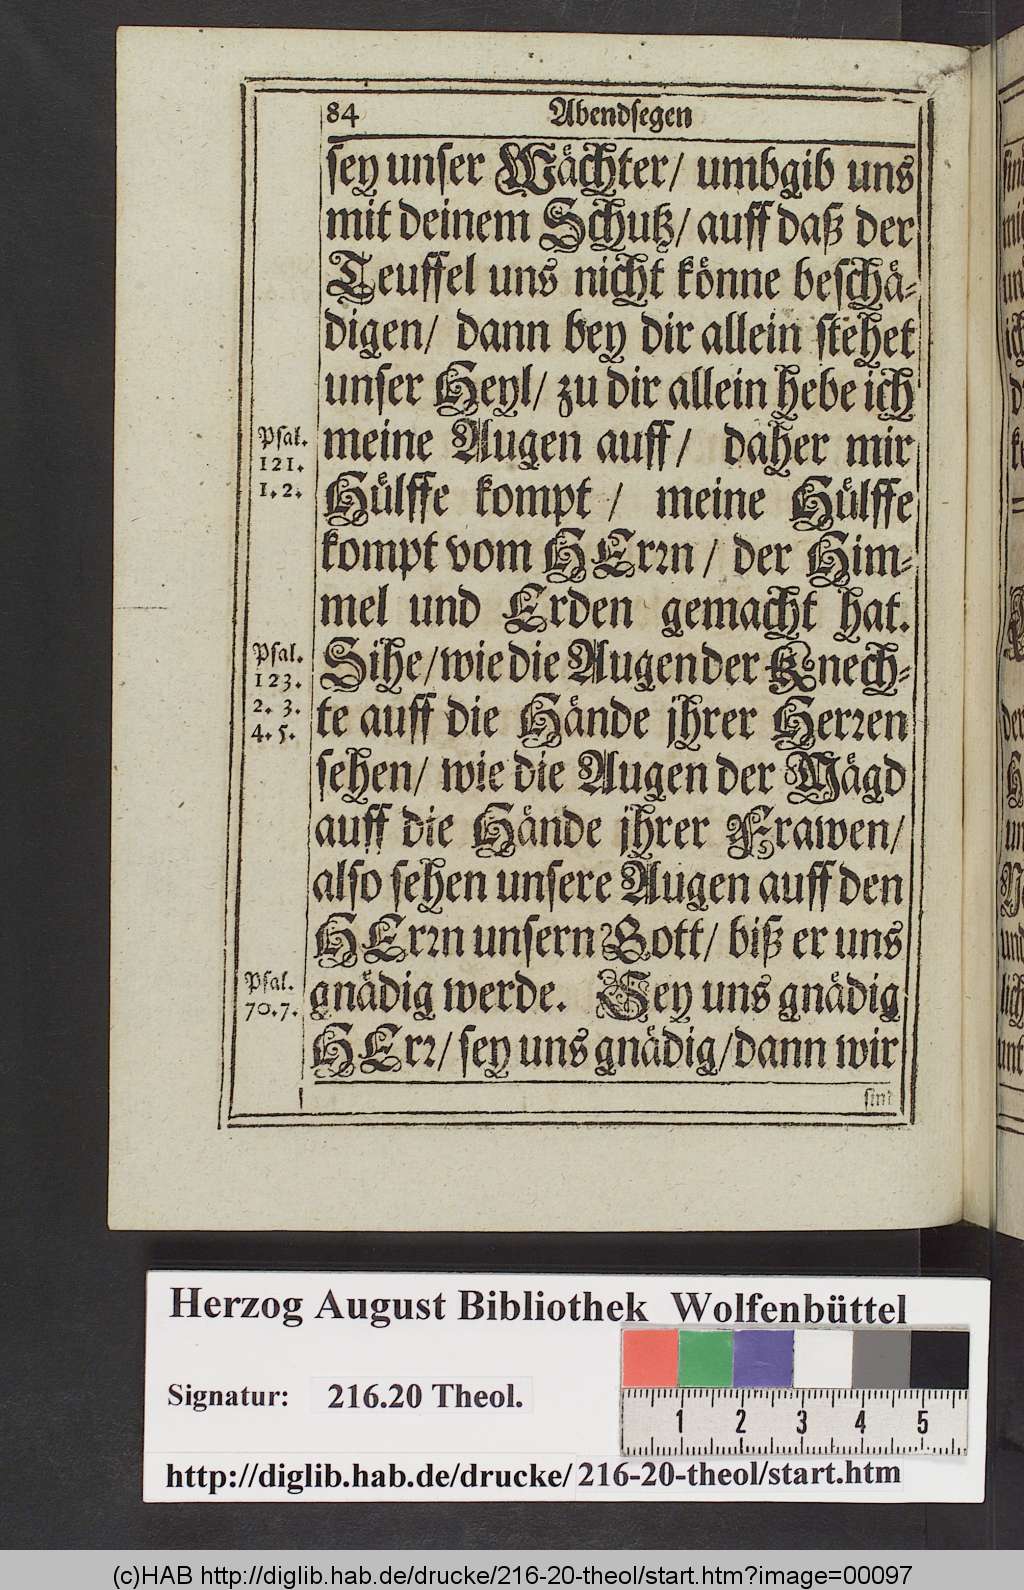 84 Abendsegen
sey unser Wächter/ umbgib uns
mit deinem Schutz/ auff daß der
Teuffel uns nicht könne beschä-
digen/ dann bey dir allein stehet
unser Heyl/ zu dir allein hebe ich
Psal. meine Augen auff/ daher mir
121.
1. 2. Hülffe kompt / meine Hülffe
kompt vom HErrn / der Him-
mel und Erden gemacht hat.
Psal. Sihe/ wie die Augen der Knech-
123.
2. 3. te auff die Hände jhrer Herren
4. 5.
sehen/ wie die Augen der Mägd
auff die Hände jhrer Frawen/
also sehen unsere Augen auff den
HErrn unsern Gott/ biß er uns
Psal. gnädig werde. Sey uns gnädig
70. 7.
HErr/ sey uns gnädig/ dann wir
sind
Herzog August Bibliothek Wolfenbüttel
Signatur: 216.20 Theol.
1 2 3 4 5
http://diglib.hab.de/drucke/216-20-theol/start.htm
(c)HAB http://diglib.hab.de/drucke/216-20-theol/start.htm?image=00097